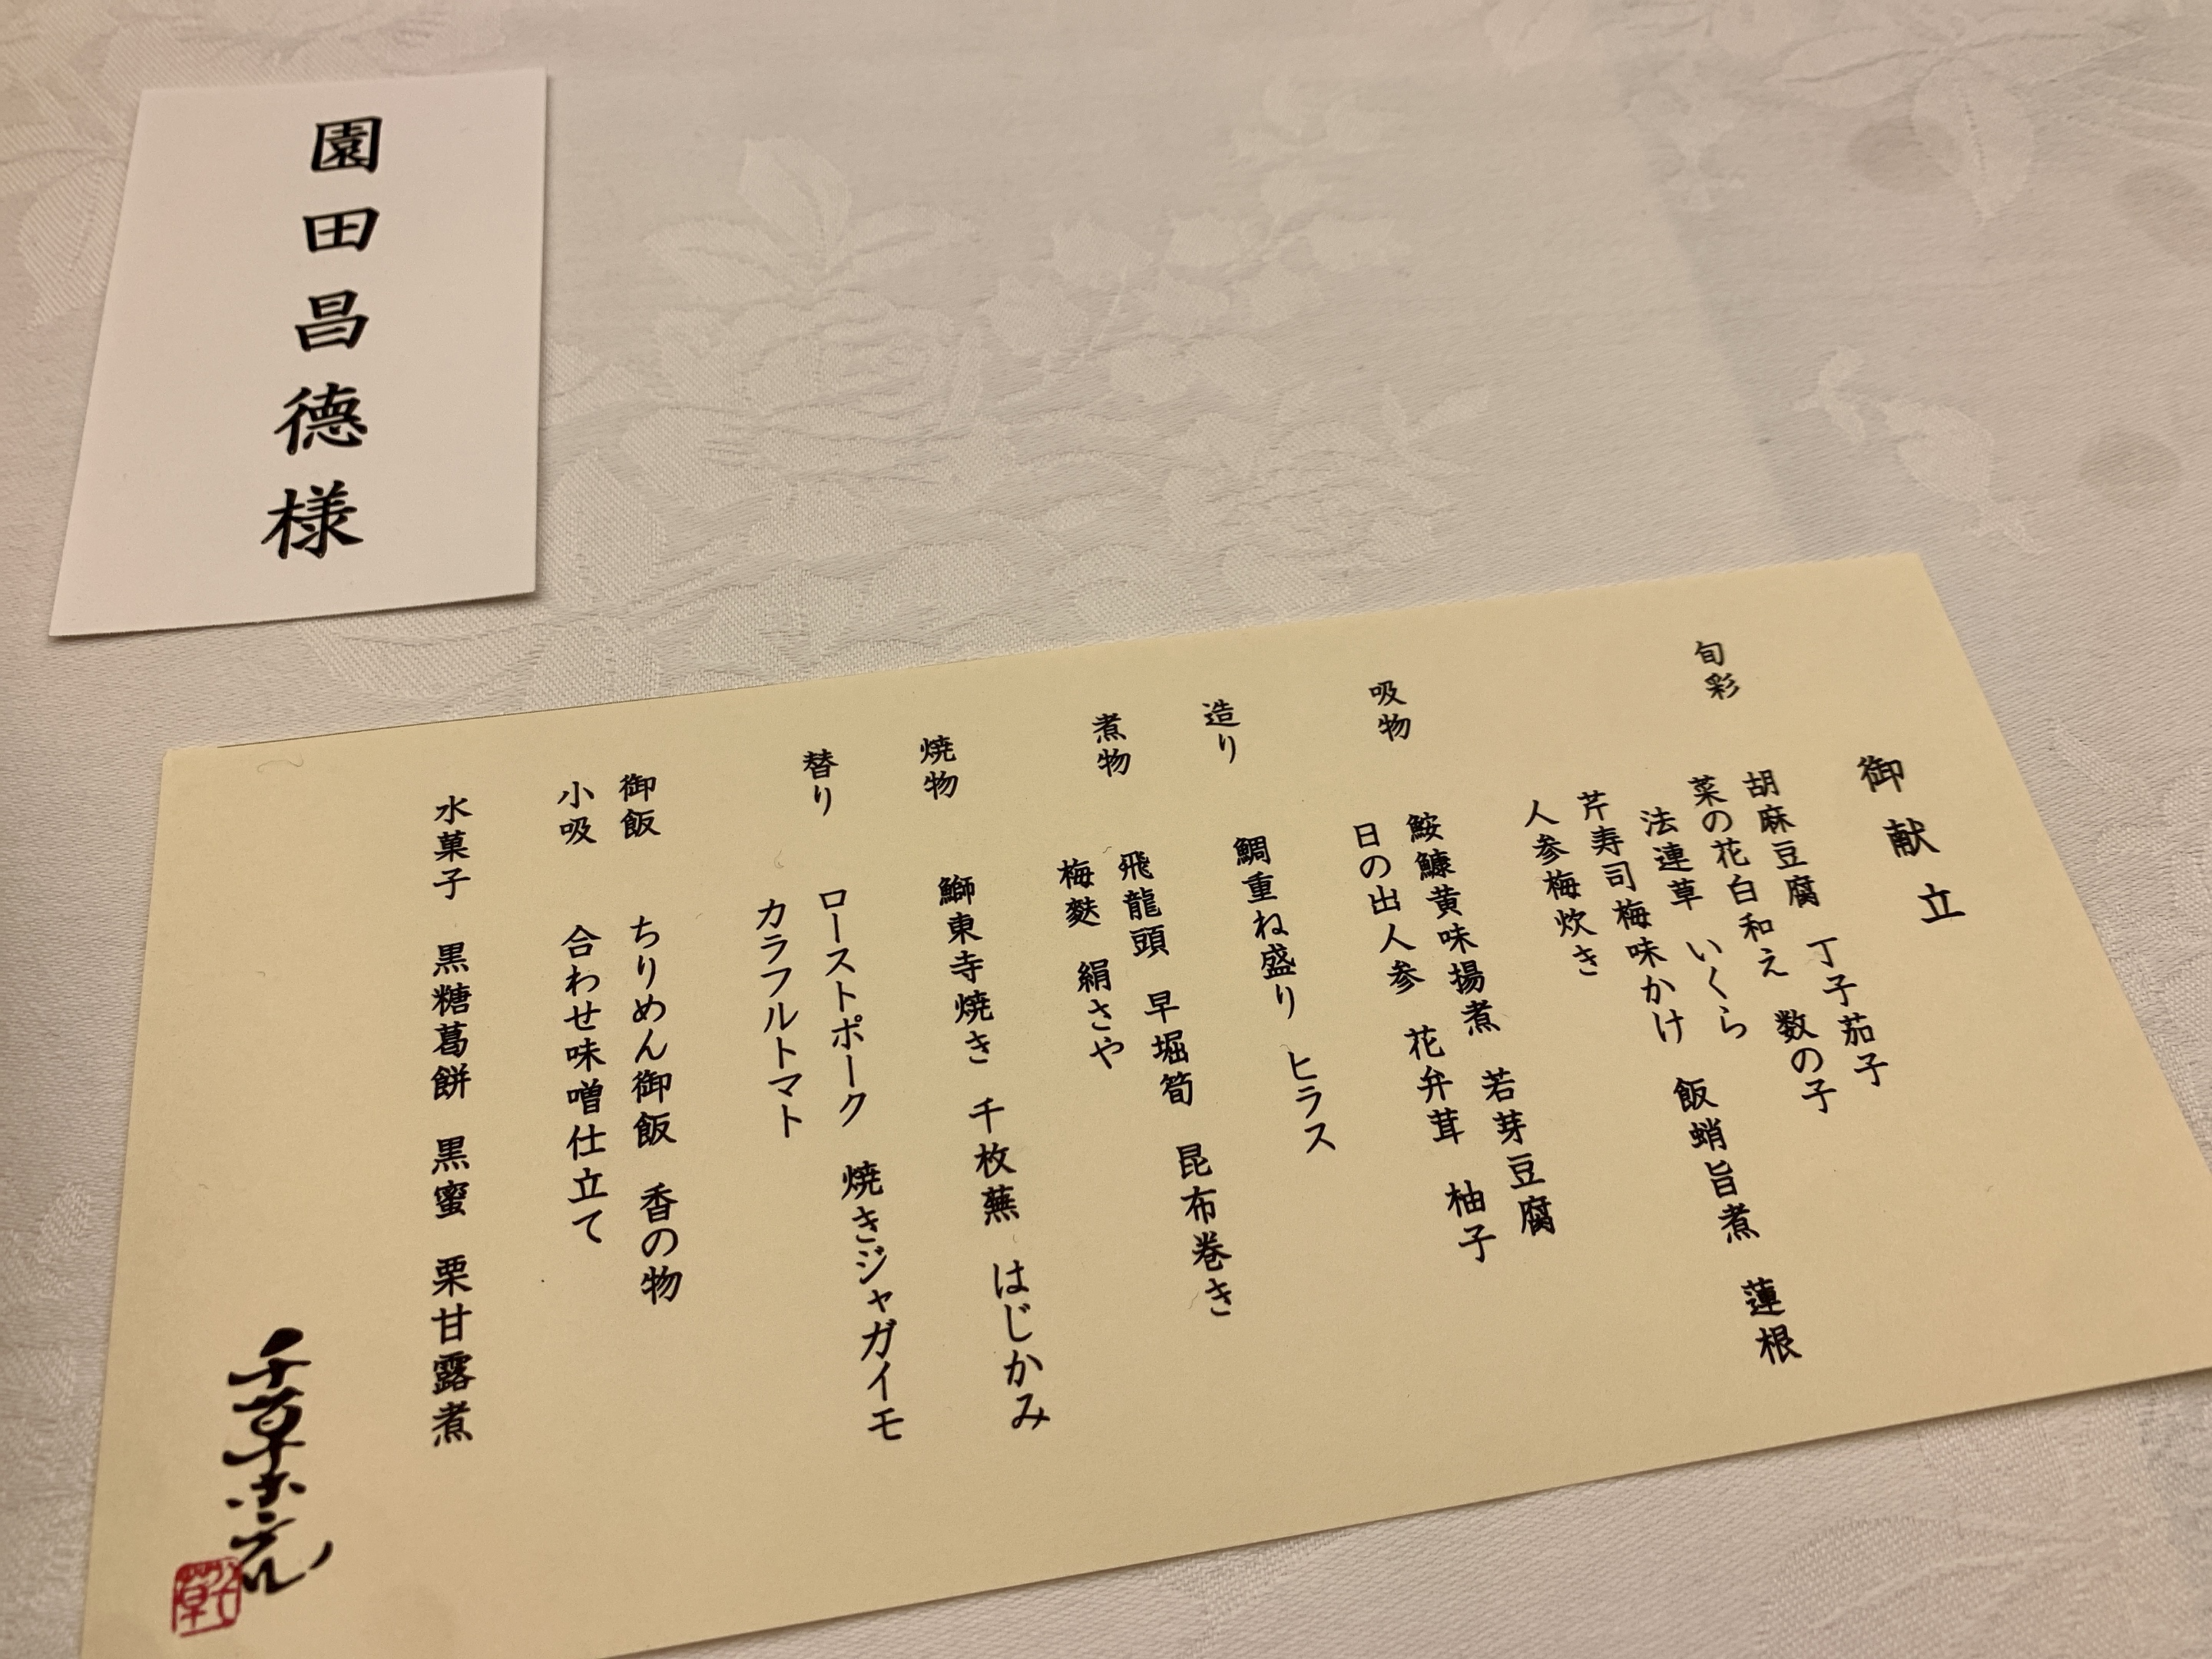 園田昌德様
御献立
旬彩　胡麻豆腐　丁子茄子
菜の花白和え　数の子
法連草　いくら
芹寿司梅味かけ　飯蛸旨煮　蓮根
人参梅炊き
吸物　鮟鱇黄味揚煮　若芽豆腐
日の出人参　花弁茸　柚子
造り　鯛重ね盛り　ヒラス
煮物　飛龍頭　早堀筍　昆布巻き
梅麩　絹さや
焼物　鰤東寺焼き　千枚蕪　はじかみ
替り　ローストポーク　焼きジャガイモ
カラフルトマト
御飯　ちりめん御飯　香の物
小吸　合わせ味噌仕立て
水菓子　黒糖葛餅　黒蜜　栗甘露煮
千草ホテル